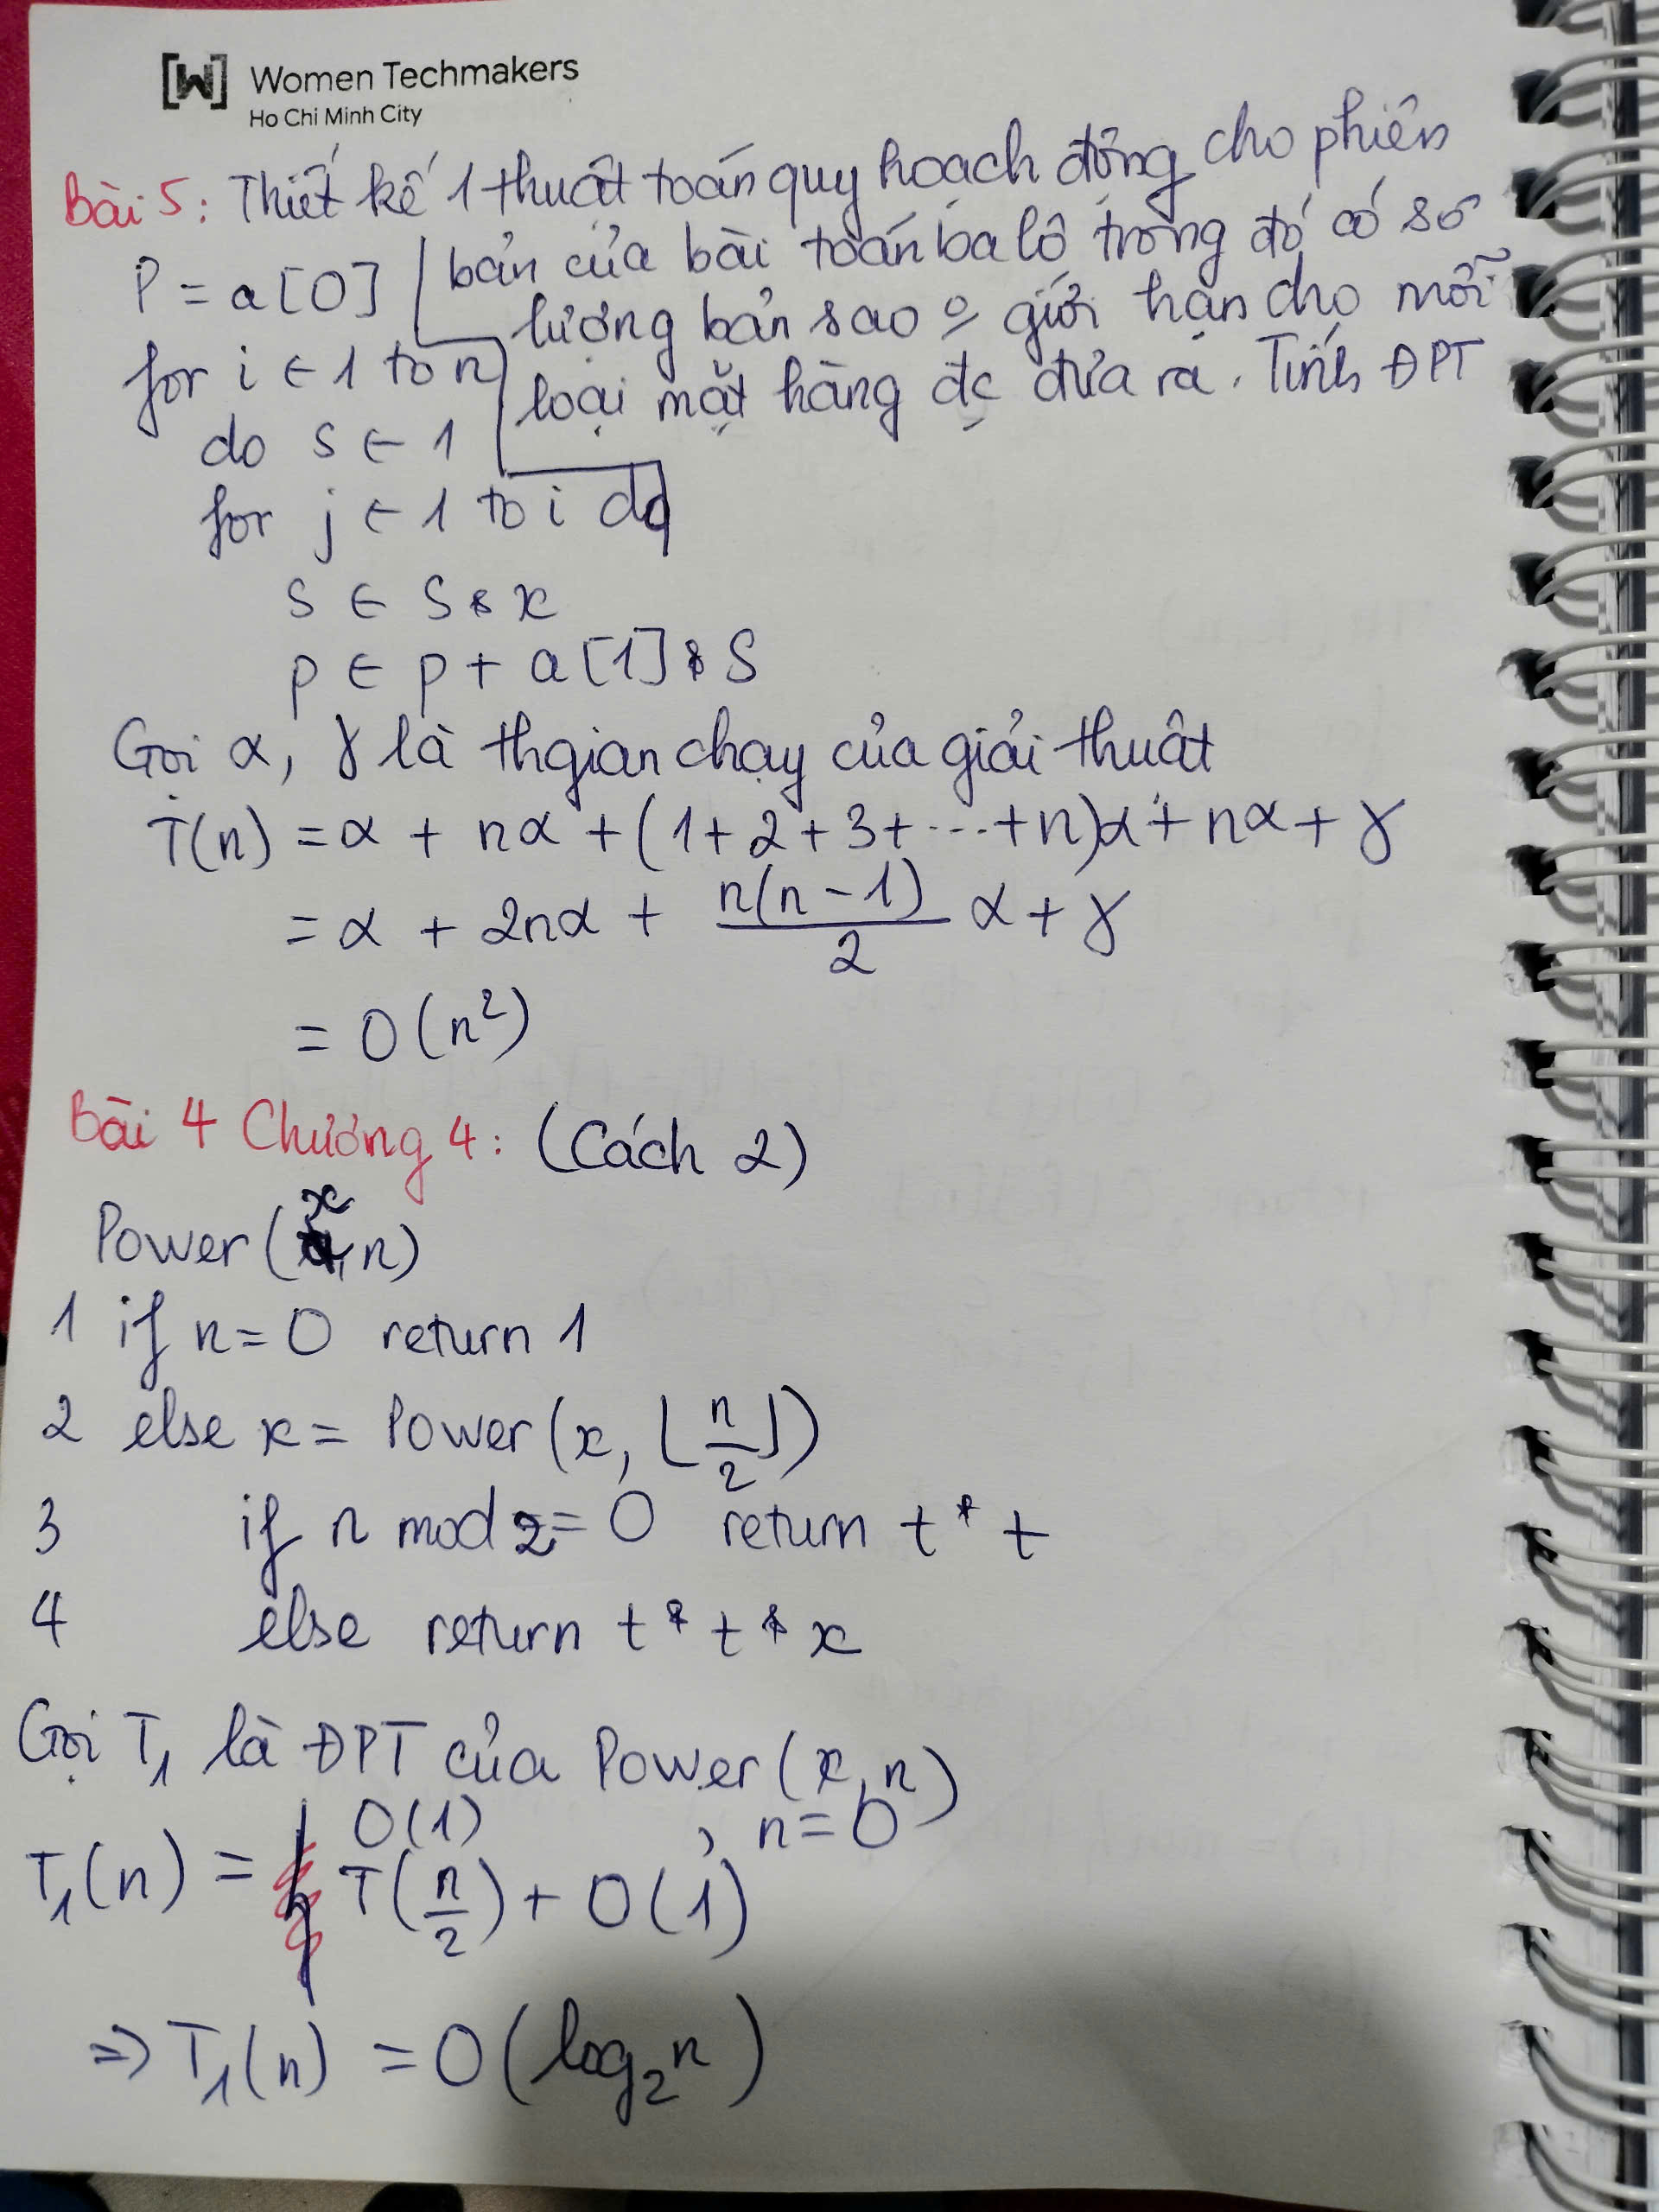 [W] Women Techmakers
Ho Chi Minh City
Bài 5: Thiết kế 1 thuật toán quy hoạch động cho phiên
bản của bài toán ba lô trong đó có số
lượng bản sao o giới hạn cho mỗi
loại mặt hàng đc đưa ra. Tính ĐPT
P = a[0]
for i ← 1 to n
do s ← 1
for j ← 1 to i do
s ← s * x
p ← p + a[1] * s
Gọi α, γ là thgian chạy của giải thuật
T(n) = α + nα + (1+2+3+...+n)α + nα + γ
= α + 2nα + n(n-1)/2 α + γ
= O(n²)
Bài 4 Chương 4: (Cách 2)
Power(x, n)
1 if n = 0 return 1
2 else x = Power(x, ⌊n/2⌋)
3 if n mod 2 = 0 return t * t
4 else return t * t * x
Gọi T₁ là ĐPT của Power(x, n)
T₁(n) = { O(1) , n = 0
T(n/2) + O(1)
⇒ T₁(n) = O(log₂n)